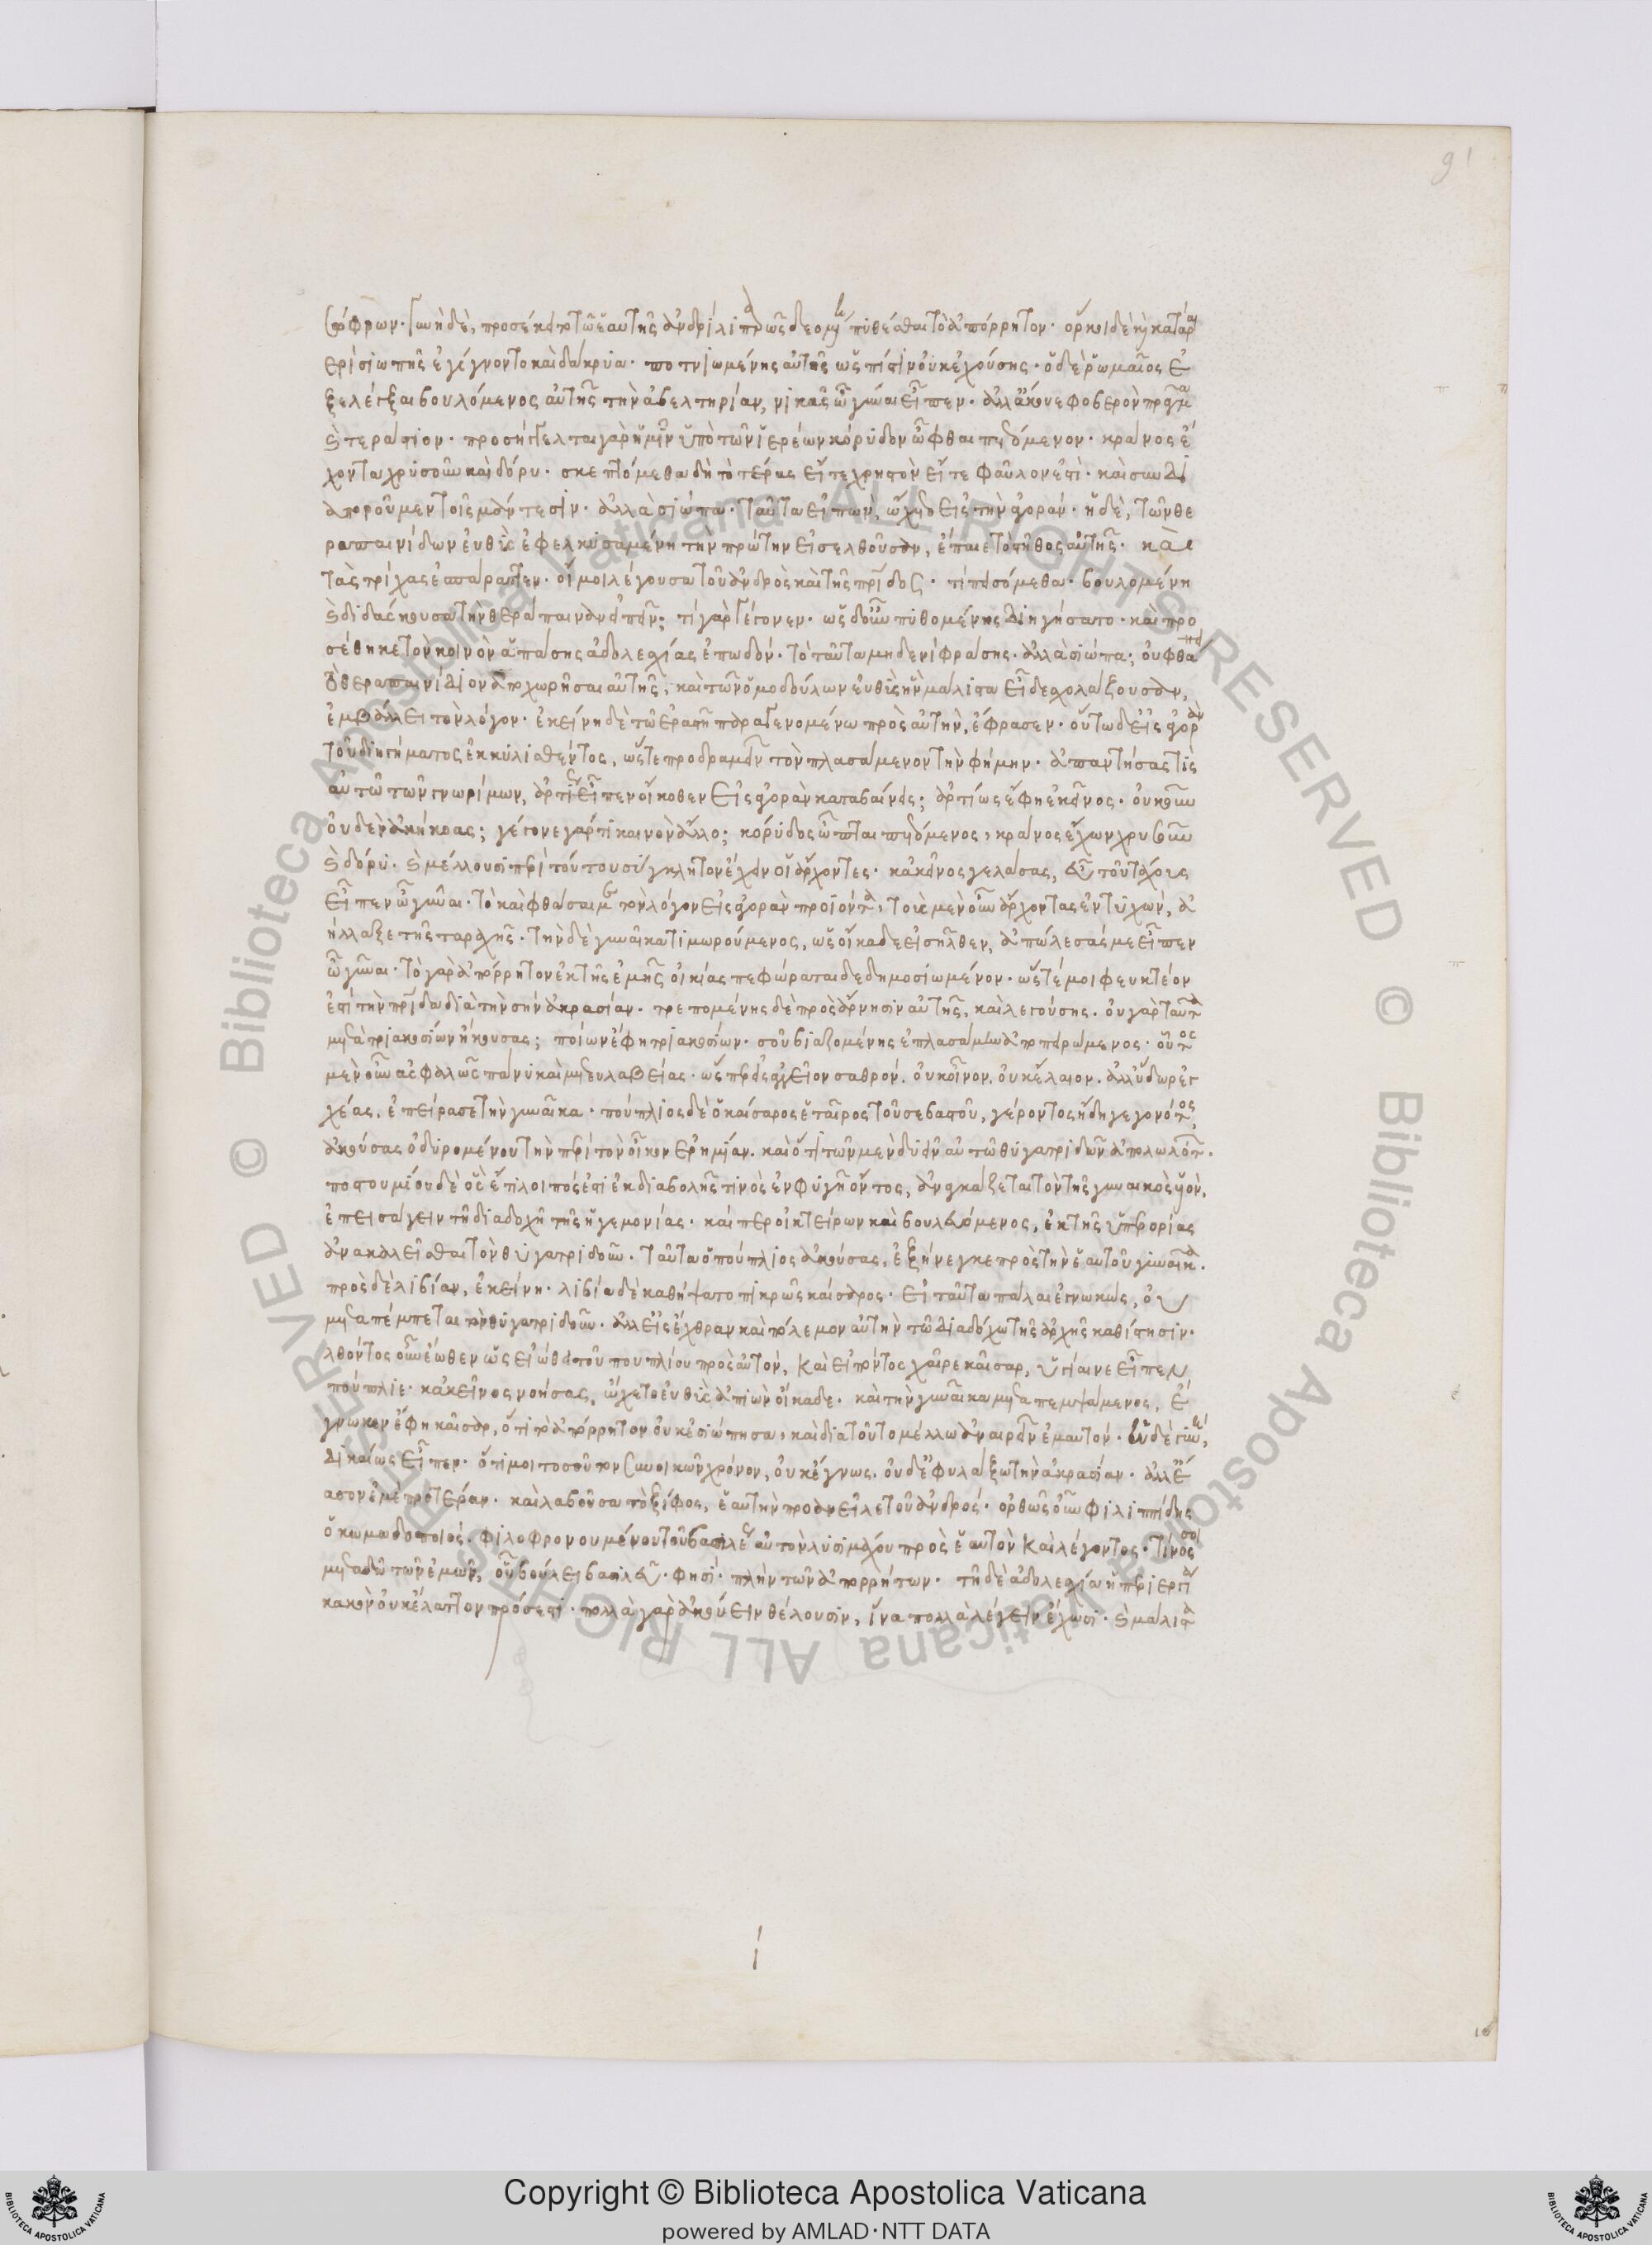 σώφρων· γυνὴ δὲ, προσέκειτο τῶ ἑαυτῆς ἀνδρὶ λιπαρῶς δεομένη πυθέσθαι τὸ ἀπόρρητον· ὅρκοι δὲ καὶ κατάραι
ερὶ σιωπῆς ἐγέγνοντο καὶ δάκρυα· ποτνιωμένης αὐτῆς ὡς πίστιν οὐκ ἐχούσης· ὁ δὲ ῥωμαῖος ἐ
ξελέγξαι βουλόμενος αὐτῆς τὴν ἀβελτηρίαν, νικᾶς ὦ γύναι εἶπεν· ἀλλ' ἄκουε φοβερὸν πρᾶγμα
καὶ τεράστιον· προσήγγελται γὰρ ἡμῖν ὑπὸ τῶν ἱερέων κόρυδον ὦφθαι πετόμενον· κράνος ἔ
χοντα χρυσοῦν καὶ δόρυ· σκεπτόμεθα δὴ τὸ τέρας εἴτε χρηστὸν εἴτε φαῦλον ἐστὶ· καὶ συνδι
αποροῦμεν τοῖς μάντεσιν· ἀλλὰ σιώπα· ταῦτα εἰπὼν, ὤχετο εἰς τὴν ἀγοράν· ἡ δὲ, τῶν θε
ραπαινίδων εὐθὺς ἐφελκυσαμένη τὴν πρώτην εἰσελθοῦσαν, ἔπαιε τὸ στῆθος αὐτῆς· καὶ
τὰς τρίχας ἐσπάραττεν· οἴμοι λέγουσα τοῦ ἀνδρὸς καὶ τῆς πατρίδος· τί πεισόμεθα· βουλομένη
καὶ διδάσκουσα τὴν θεράπαιναν εἰπεῖν; τί γὰρ γέγονεν· ὡς δ' οὖν πυθομένης διηγήσατο· καὶ προ
σέθηκε τὸν κοινὸν ἁπάσης ἀδολεσχίας ἐπωδόν· τὸ ταῦτα μηδενὶ φράσης· ἀλλὰ σιώπα; οὐ φθάνει
τὸ θεραπαινίδιον ἀποχωρῆσαι αὐτῆς, καὶ τῶν ὁμοδούλων εὐθὺς ἣν μάλιστα εἶδε σχολάζουσαν,
ἐμβάλλει τὸν λόγον· ἐκείνη δὲ τῶ ἐραστῆ παραγενομένω πρὸς αὐτὴν, ἔφρασεν· οὕτω δ' εἰς ἀγορὰν
τοῦ διηγήματος ἐκκυλισθέντος, ὥστε προδραμεῖν τὸν πλασάμενον τὴν φήμην· ἀπαντήσας τὶς
αὐτῶ τῶν γνωρίμων, ἀρτίως εἶπεν οἴκοθεν εἰς ἀγορὰν καταβαίνεις; ἀρτίως ἔφη ἐκεῖνος· οὐκοῦν
οὐδὲν ἀκήκοας; γέγονε γάρ τι καινὸν ἄλλο; κόρυδος ὦπται πετόμενος, κράνος ἔχων χρυσοῦν
καὶ δόρυ· καὶ μέλλουσι περὶ τούτου σύγκλητον ἔχειν οἱ ἄρχοντες· κἀκεῖνος γελάσας, εὖ τοῦ τάχους
εἶπεν ὦ γύναι· τὸ καὶ φθάσαι με τὸν λόγον εἰς ἀγορὰν προϊόντα, τοὺς μὲν οὖν ἄρχοντας ἐντυχὼν, ἀ
πήλλαξε τῆς ταραχῆς· τὴν δὲ γυναῖκα τιμωρούμενος, ὡς οἴκαδε εἰσῆλθεν, ἀπώλεσάς με εἶπεν
ὦ γύναι· τὸ γὰρ ἀπόρρητον ἐκ τῆς ἐμῆς οἰκίας πεφώραται δεδημοσιωμένον· ὥστέ μοι φευκτέον
ἐστὶ τὴν πατρίδα διὰ τὴν σὴν ἀκρασίαν· τρεπομένης δὲ πρὸς ἄρνησιν αὐτῆς, καὶ λεγούσης· οὐ γὰρ ταῦτα
μετὰ τριακοσίων ἤκουσας; ποίων ἔφη τριακοσίων· σοῦ βιαζομένης ἐπλασάμην ἀποπειρώμενος· οὗτος
μὲν οὖν ἀσφαλῶς πάνυ καὶ μετ' εὐλαβείας· ὡς περ εἰς ἀγγεῖον σαθρόν. οὐκ οἶνον. οὐκ ἔλαιον. ἀλλ' ὕδωρ ἐγ
χέας, ἐπείρασε τὴν γυναῖκα· πούπλιος δὲ ὁ καίσαρος ἑταῖρος τοῦ σεβαστοῦ, γέροντος ἤδη γεγονότος,
ἀκούσας ὀδυρομένου τὴν περὶ τὸν οἶκον ἐρημίαν. καὶ ὅτι τῶν μὲν δυεῖν αὐτῶ θυγατριδῶν ἀπολωλότων·
ποστουμίου δὲ ὃς ἔτι λοιπός ἐστι ἐκ διαβολῆς τινὸς ἐν φυγῆ ὄντος, ἀναγκάζεται τὸν τῆς γυναικὸς υἱὸν,
ἐπεισάγειν τῆ διαδοχῆ τῆς ἡγεμονίας· καίπερ οἰκτείρων καὶ βουλευόμενος, ἐκ τῆς ὑπερορίας
ἀνακαλεῖσθαι τὸν θυγατριδοῦν· ταῦτα ὁ πούπλιος ἀκούσας, ἐξήνεγκε πρὸς τὴν ἑαυτοῦ γυναῖκα·
πρὸς δὲ λιβίαν, ἐκείνη· λιβία δὲ καθήψατο πικρῶς καίσαρος· εἰ ταῦτα πάλαι ἐγνωκὼς, οὐ
μεταπέμπεται τὸν θυγατριδοῦν· ἀλλ' εἰς ἔχθραν καὶ πόλεμον αὐτὴν τῶ διαδόχω τῆς ἀρχῆς καθίστησιν·
λθόντος οὖν ἕωθεν ὡς εἰώθει τοῦ πουπλίου πρὸς αὐτόν, καὶ εἰπόντος χαῖρε καῖσαρ, ὑγίαινε εἶπεν
πούπλιε· κἀκεῖνος νοήσας, ὤχετο εὐθὺς ἀπιὼν οἴκαδε· καὶ τὴν γυναῖκα μεταπεμψάμενος, ἔ
γνωκεν ἔφη καῖσαρ, ὅτι τὸ ἀπόρρητον οὐκ ἐσιώπησα, καὶ διὰ τοῦτο μέλλω ἀναιρεῖν ἐμαυτόν· ἡ δὲ γυνή,
δικαίως εἶπεν· ὅτι μοι τοσοῦτον συνοικῶν χρόνον, οὐκ ἔγνως. οὐδ' ἐφυλάξω τὴν ἀκρασίαν· ἀλλ' ἔ
ασον ἐμὲ προτέραν· καὶ λαβοῦσα τὸ ξίφος, ἑαυτὴν προανεῖλε τοῦ ἀνδρός· ὀρθῶς οὖν φιλιππίδης
ὁ κωμωδοποιός. φιλοφρονουμένου τοῦ βασιλέως αὐτὸν λυσιμάχου πρὸς ἑαυτὸν καὶ λέγοντος· τίνος σοι
μεταδῶ τῶν ἐμῶν, οὗ βούλει βασιλεῦ· φησί· πλὴν τῶν ἀπορρήτων· τῆ δὲ ἀδολεσχία ἡ περιεργία
κακὸν οὐκ ἔλαττον πρόσεστι· πολλὰ γὰρ ἀκούειν θέλουσιν, ἵνα πολλὰ λέγειν ἔχωσι· καὶ μάλιστα
Copyright © Biblioteca Apostolica Vaticana
powered by AMLAD·NTT DATA